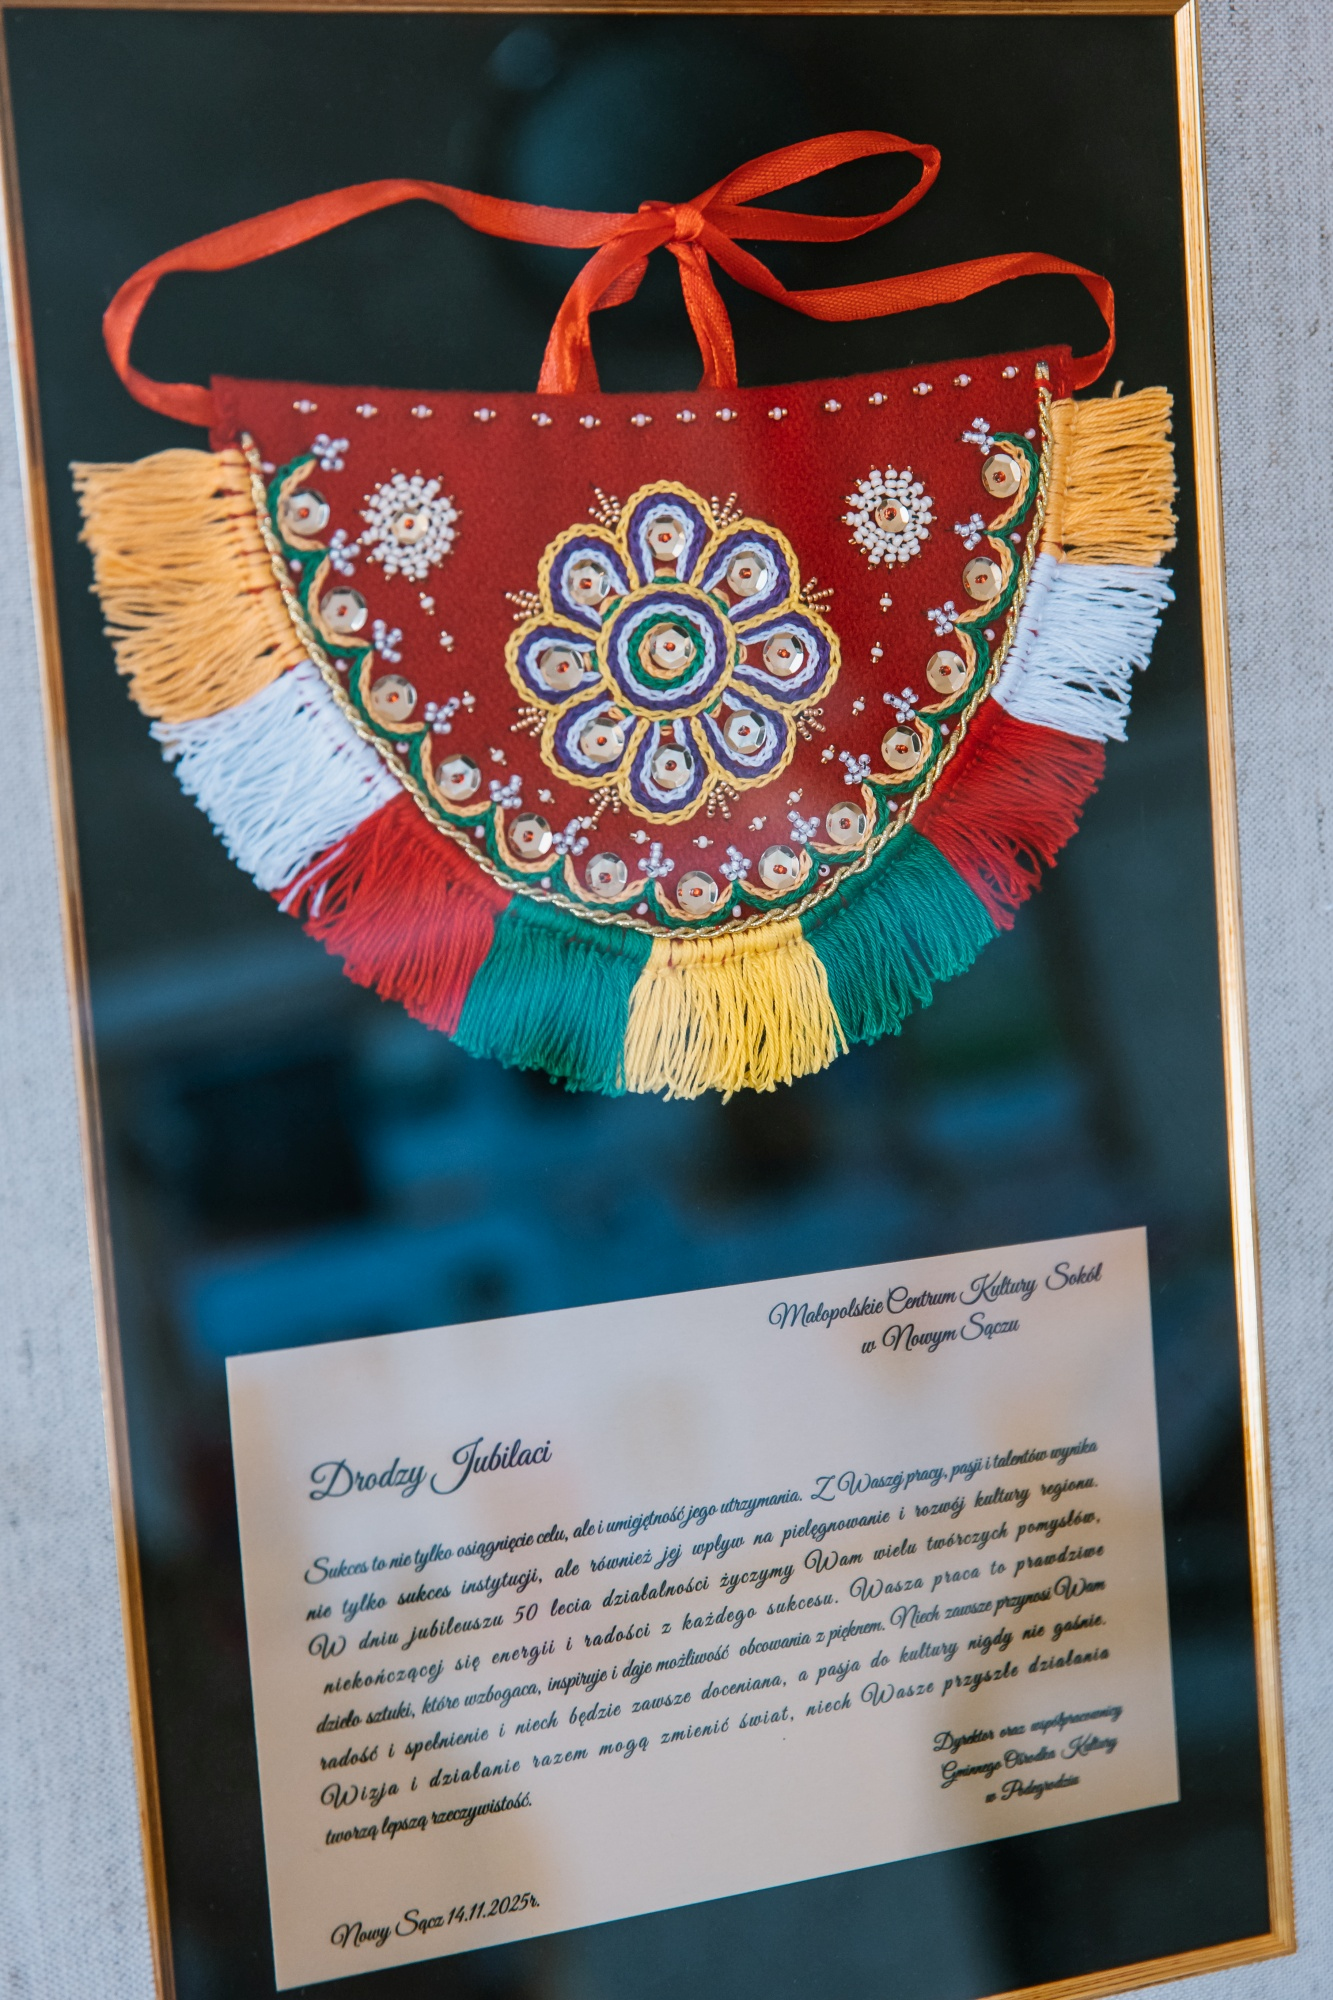 Małopolskie Centrum Kultury Sokół
w Nowym Sączu
Drodzy Jubilaci
Sukces to nie tylko osiągnięcie celu, ale i umiejętność jego utrzymania. Z Waszej pracy, pasji i talentów wynika
nie tylko sukces instytucji, ale również jej wpływ na pielęgnowanie i rozwój kultury regionu.
W dniu jubileuszu 50 lecia działalności życzymy Wam wielu twórczych pomysłów,
niekończącej się energii i radości z każdego sukcesu. Wasza praca to prawdziwe
dzieło sztuki, które wzbogaca, inspiruje i daje możliwość obcowania z pięknem. Niech zawsze przynosi Wam
radość i spełnienie i niech będzie zawsze doceniana, a pasja do kultury nigdy nie gaśnie.
Wizja i działanie razem mogą zmienić świat, niech Wasze przyszłe działania
tworzą lepszą rzeczywistość.
Dyrektor oraz współpracownicy
Gminnego Ośrodka Kultury
w Podegrodziu
Nowy Sącz 14.11.2025r.